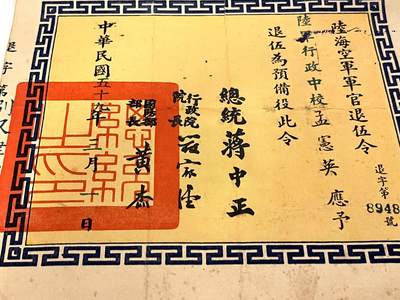 陸海空軍軍官退伍令
陸軍行政中校孟憲英應予
退伍為預備役此令
退字第8948號
總統蔣中正
行政院院長嚴家淦
國防部部長黃杰
中華民國五十九年三月一日
退字第